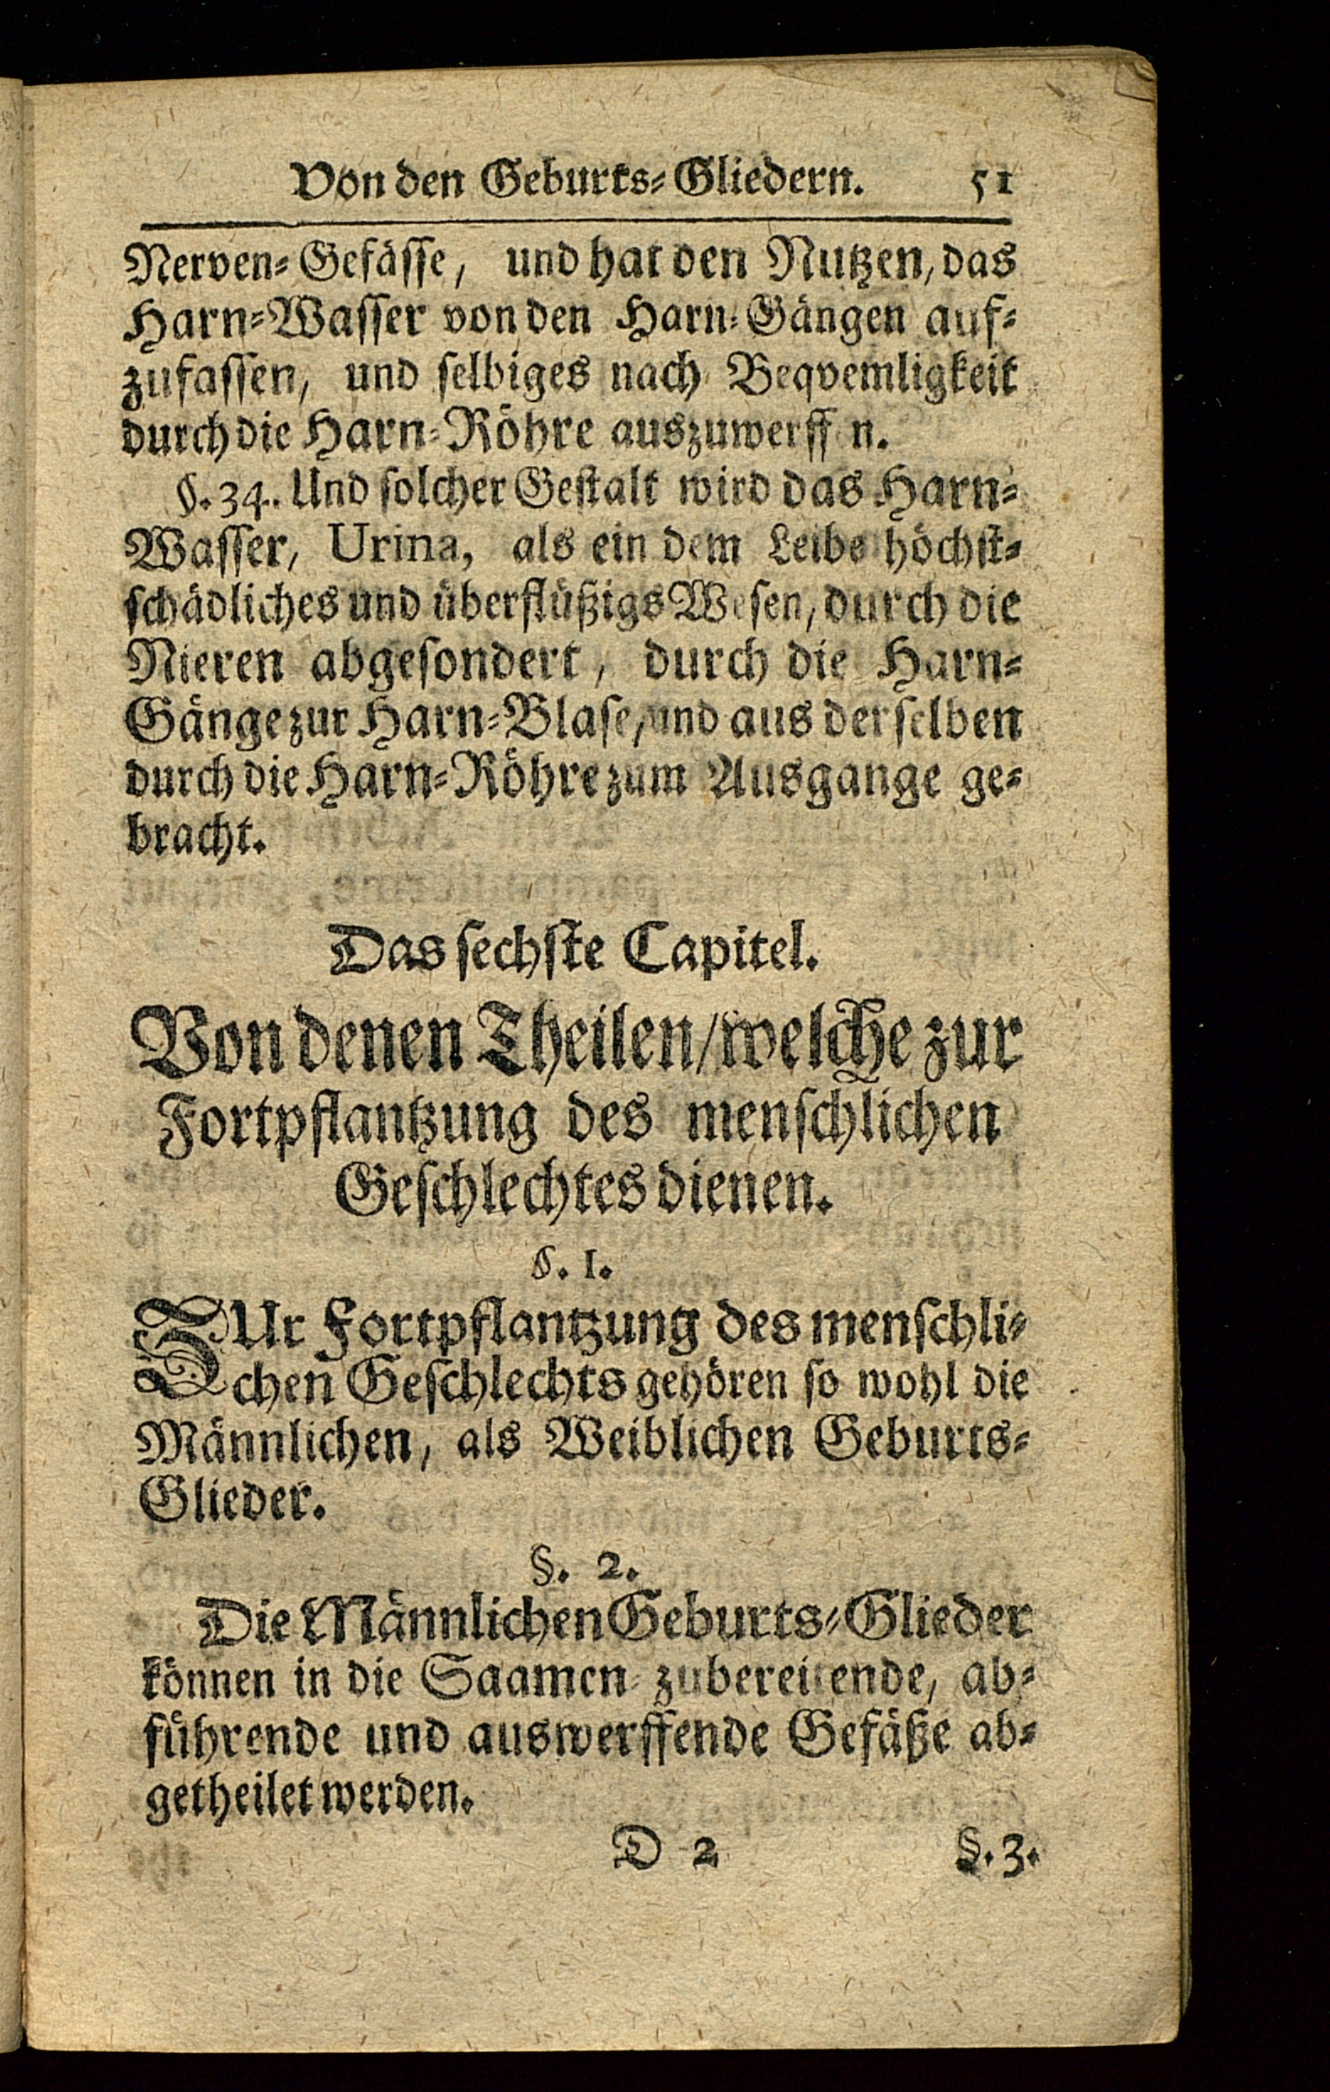 Von den Geburts-Gliedern. 51
Nerven-Gefässe, und hat den Nutzen, das
Harn-Wasser von den Harn-Gängen auf-
zufassen, und selbiges nach Beqvemligkeit
durch die Harn-Röhre auszuwerff n.
§. 34. Und solcher Gestalt wird das Harn-
Wasser, Urina, als ein dem Leibe höchst-
schädliches und überflüßigs Wesen, durch die
Nieren abgesondert, durch die Harn-
Gänge zur Harn-Blase, und aus derselben
durch die Harn-Röhre zum Ausgange ge-
bracht.
Das sechste Capitel.
Von denen Theilen/welche zur
Fortpflantzung des menschlichen
Geschlechtes dienen.
§. 1.
ZUr Fortpflantzung des menschli-
chen Geschlechts gehören so wohl die
Männlichen, als Weiblichen Geburts-
Glieder.
§. 2.
Die Männlichen Geburts-Glieder
können in die Saamen zubereitende, ab-
führende und auswerffende Gefäße ab-
getheilet werden.
D 2 §. 3.